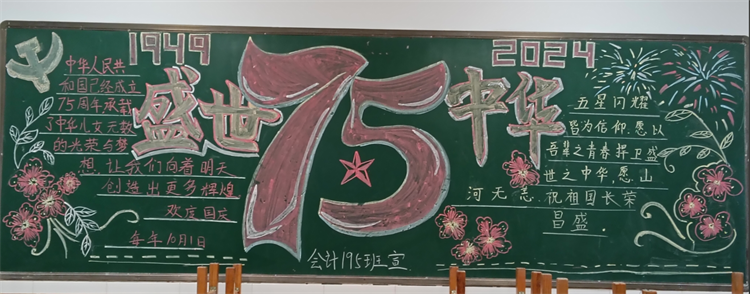 1949
2024
盛世
75
中华
中华人民共
和国已经成立
75周年承载
了中华儿女无数
的光荣与梦
想，让我们向着明天
创造出更多辉煌
欢度国庆
每年10月1日
五星闪耀
皆为信仰，愿以
吾辈之青春捍卫盛
世之中华，愿山
河无恙，祝祖国长荣
昌盛.
会计195班宣